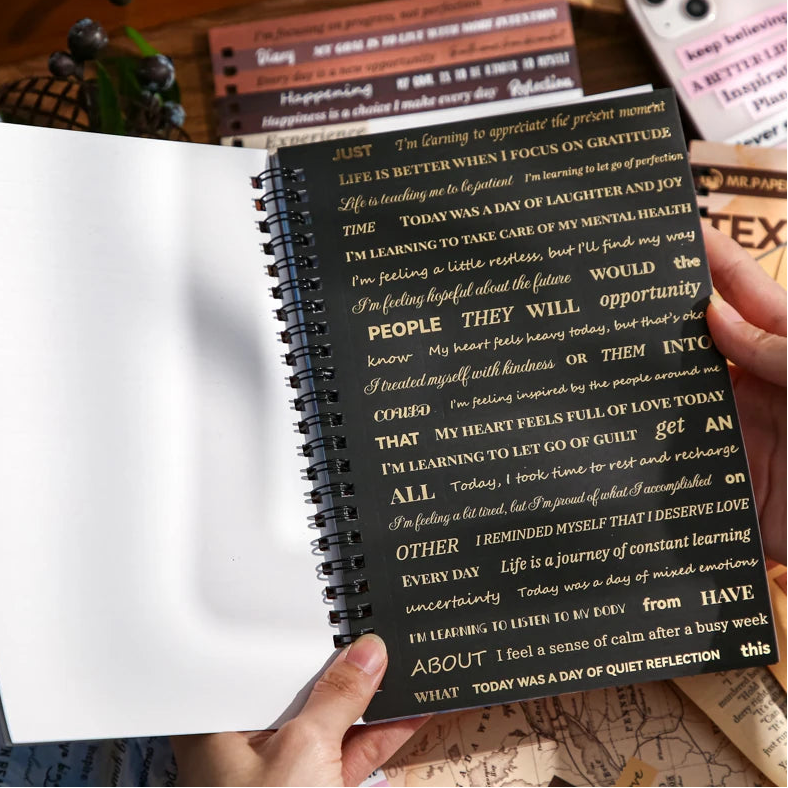 I'm focusing on progress, not perfection
Diary MY GOAL IS TO LIVE WITH MORE INTENTION
Every day is a new opportunity
Happening
Happiness is a choice I make every day Reflection
Experience
keep believing
A BETTER LIFE
Inspiration
MR.PAPER
TEX
JUST I'm learning to appreciate the present moment
LIFE IS BETTER WHEN I FOCUS ON GRATITUDE
Life is teaching me to be patient I'm learning to let go of perfection
TIME TODAY WAS A DAY OF LAUGHTER AND JOY
I'M LEARNING TO TAKE CARE OF MY MENTAL HEALTH
I'm feeling a little restless, but I'll find my way
I'm feeling hopeful about the future WOULD the
PEOPLE THEY WILL opportunity
know My heart feels heavy today, but that's oka
I treated myself with kindness OR THEM INTO
COULD I'm feeling inspired by the people around me
THAT MY HEART FEELS FULL OF LOVE TODAY
I'M LEARNING TO LET GO OF GUILT get AN
ALL Today, I took time to rest and recharge
I'm feeling a bit tired, but I'm proud of what I accomplished on
OTHER I REMINDED MYSELF THAT I DESERVE LOVE
EVERY DAY Life is a journey of constant learning
uncertainty Today was a day of mixed emotions
I'M LEARNING TO LISTEN TO MY BODY from HAVE
ABOUT I feel a sense of calm after a busy week
WHAT TODAY WAS A DAY OF QUIET REFLECTION this